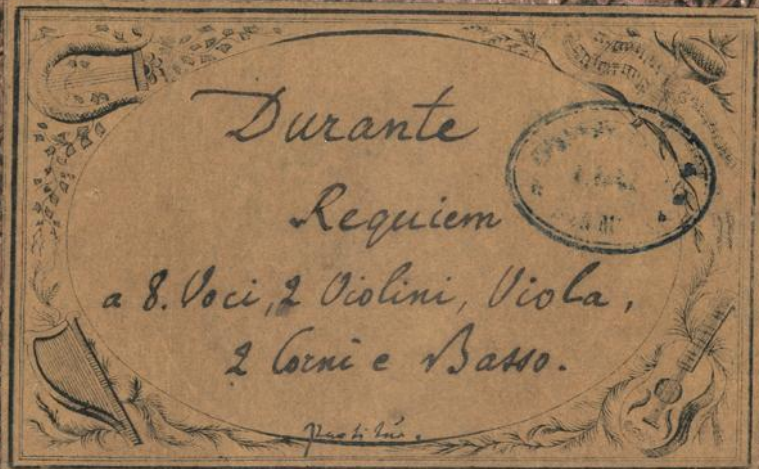 Durante
Requiem
a 8. Voci, 2 Violini, Viola,
2 Corni e Basso.